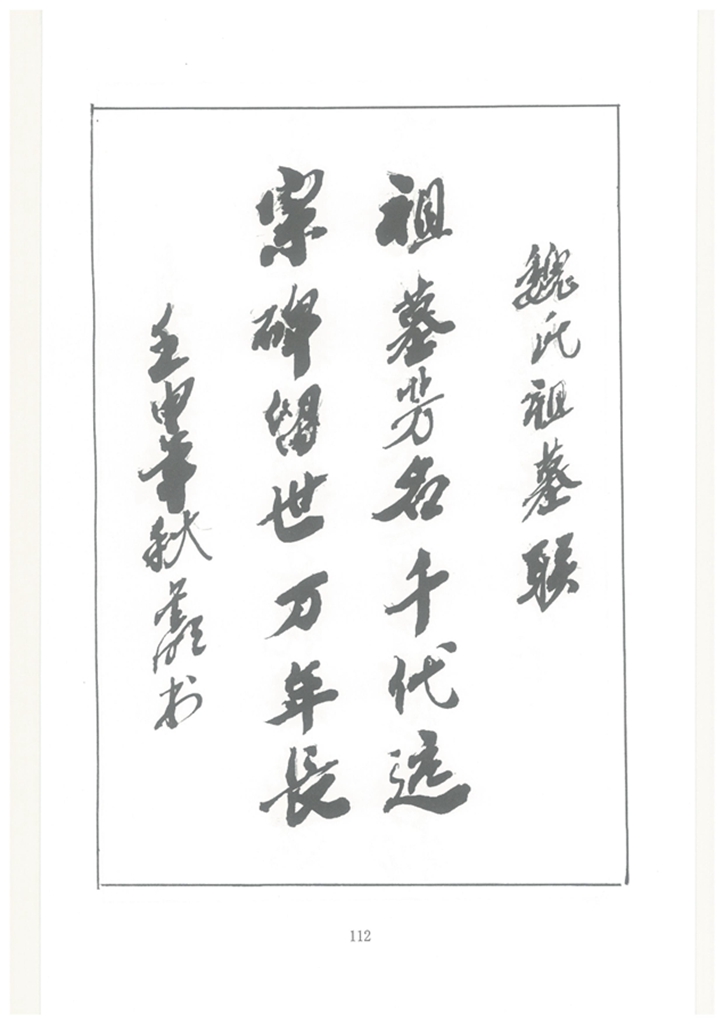 魏氏祖墓联
祖墓芳名千代远
宗碑留世万年長
壬申年秋 书
112